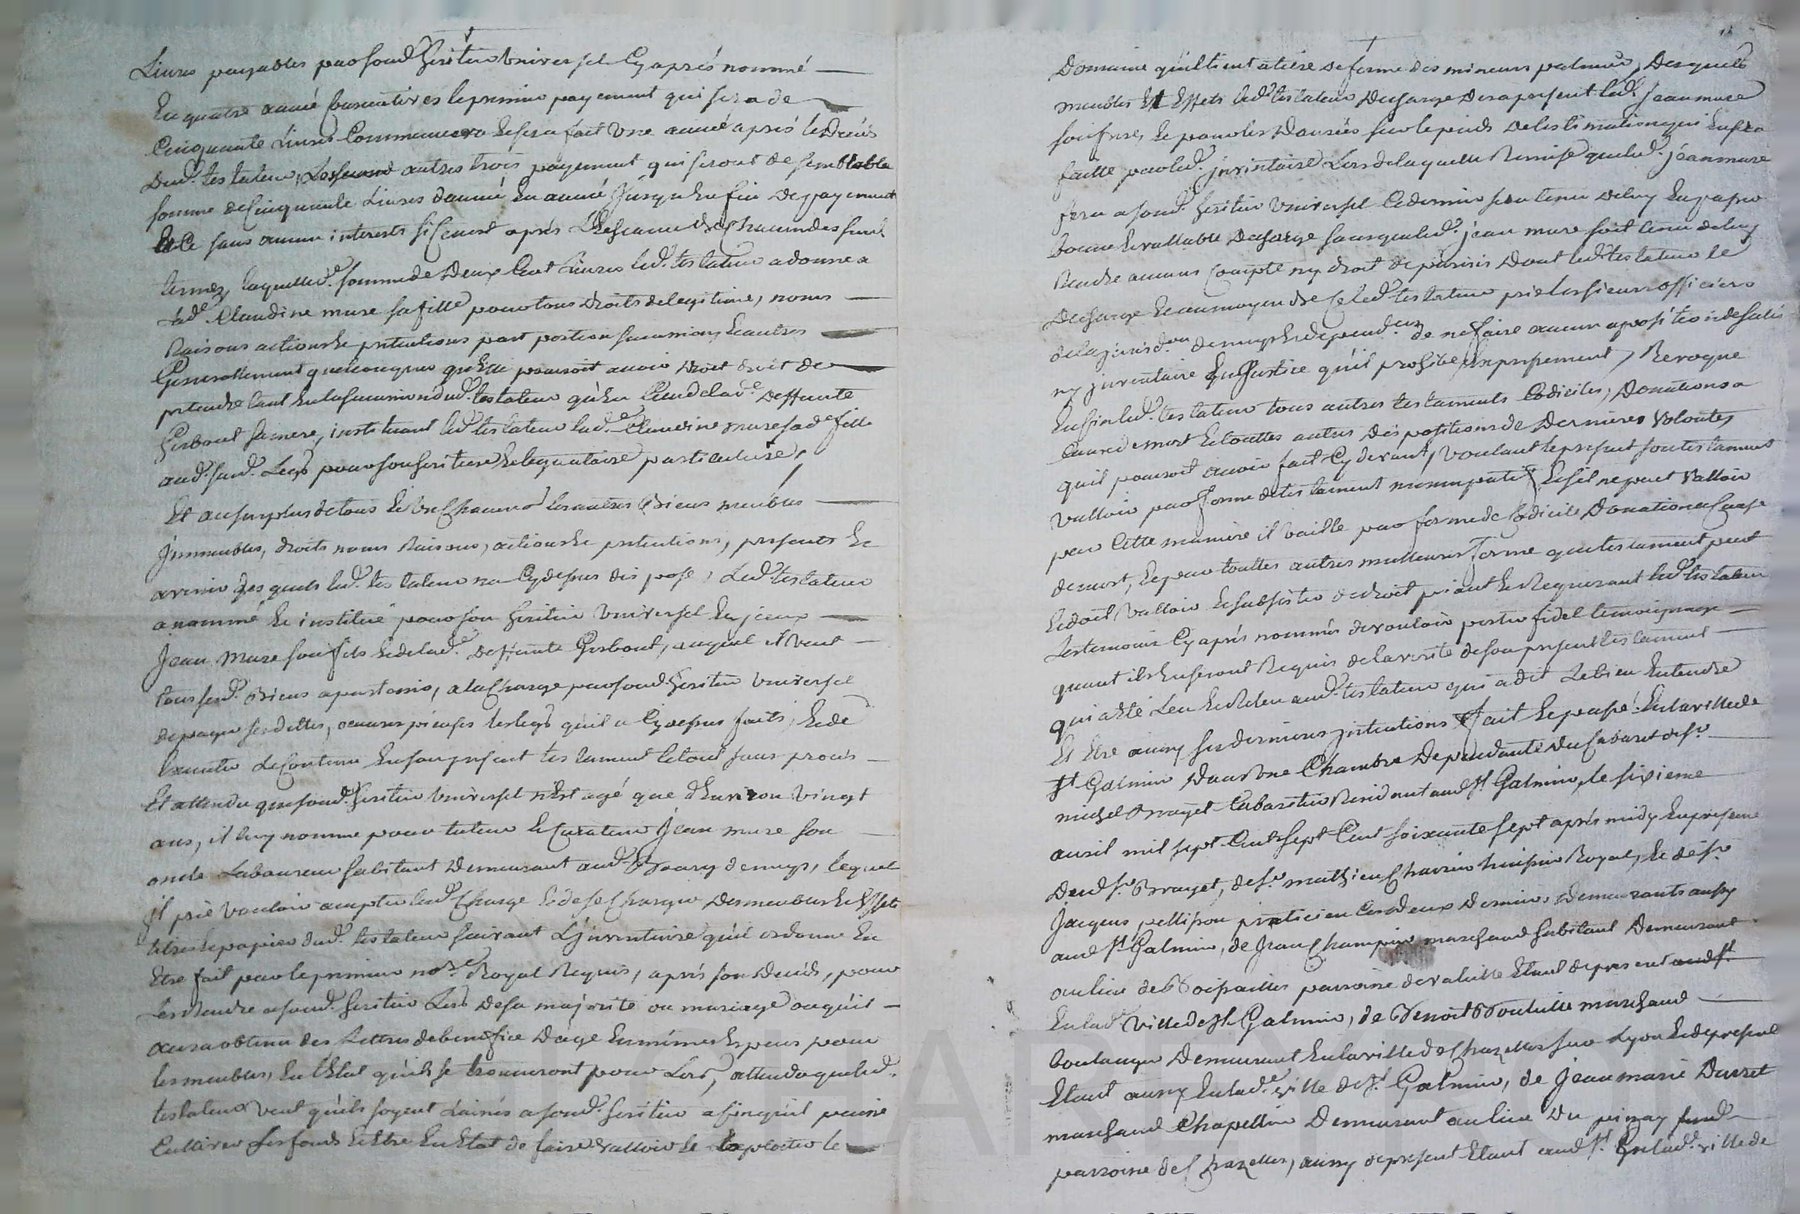 Livres payables par sond. heritier universel cy aprés nommé
En quatre année consecutives le premier payement qui sera de
Cinquante Livres Commencera et sera fait Une année aprés le Decés
Dud. testateur, autres trois payement qui seront de semblable
somme de Cinquante Livres dannée En année jusqu'a Enfin de payement
Et Ce sans aucun interests si Ce n'est aprés L'Echeance de Chacun des susd.
termes, laquelle d. somme de Deux Cent Livres led. testateur a donné a
lad. Claudine mure sa fille pour tous droits de legitime, noms
Raisons actions Et pretentions part portion suremoins Et autres
Generallement quelconques qu'Elle pouroit avoir Droit de
pretendre tant En la sucession dud. testateur qu'En Celle de lad. Deffunte
Gisbout sa mere, instituant led. testateur lad. Claudine mure sad. fille
aud. susd. Legs pour son heritiere Et legataire particuliere,
Et au surplus de tous Et Un Chacuns les autres Biens meubles
jmmeubles, droits noms Raisons, actions Et pretentions, presents Et
avenir desquels led. testateur na Cy dessus disposé, Led. testateur
a nommé Et institué pour son heritier Universel
Jean Mure son fils Et de lad. Deffunte Gisbout, auquel il veut
tous sesd. Biens apartenir, a la Charge par sond. heritier Universel
de payer ses dettes, oeuvres pieuses Et legs qu'il a Cy dessus faits, Et de
Executer Le Contenu En son present testament le tout sans procés
Et attendu que sond. heritier Universel n'Est agé que d'Environ Vingt
ans, il luy nomme pour tuteur Et Curateur Jean mure son
oncle Laboureur habitant Demeurant aud. Bourg de , lequel
jl prie Vouloir accepter lad. Charge Et de se Charger Des meubles Et Effets
titres Et papiers dud. testateur suivant L'jnventaire qu'il ordonne En
Etre fait par le premier no.re Royal Requis, aprés son Decés, pour
Les Rendre a sond. heritier Lors De sa majorité ou mariage ou qu'il
aura obtenu des Lettres de benefice D'age En mêmes Especes pour
les meubles, En l'Etat qu'ils se trouveront pour Lors, attendu que led.
testateur veut qu'ils soyent Laissés a sond. heritier afin qu'il puisse
Cultiver Les fonds Et Etre En Etat de faire valloir Et Exploiter le
Domaine qu'il tient a titre de ferme des mineurs , Desquels
meubles Et Effets led. testateur Decharge Des a present led. jean mure
son frere, Et pour les Danrées sur le pieds De l'estimation qui En sera
faitte par led. jnventaire Lors de laquelle Remise que led. jean mure
fera a sond. heritier Universel Ce dernier sera tenu De luy En passer
bonne Et vallable Decharge sans que led. jean mure soit tenu de luy
Rendre aucuns Compte ny droit de Dont led. testateur le
Decharge Et au moyen de Ce led. testateur prie les sieurs officiers
de la jurisd.on de Et dependances de ne faire aucun aposition de sellés
ny jnventaire En Justice qu'il prohibe Expressement, Revoque
Enfin led. testateur tous autres testaments Codiciles, Donations a
Cause de mort Et touttes autres Dispositions de Dernieres Volontés
quil pouroit avoir fait Cy devant, Voulant Le present son testament
Valloir par forme de testament nuncupatif, Et s'il ne peut Valloir
par Cette maniere il Vaille par forme de Codicile Donation a Cause
de mort, Et par touttes autres meilleures forme que testament peut
Et doit Valloir Et subsister de droit priant Et Requerant led. testateur
Les temoins Cy aprés nommés de vouloir porter fidel temoignage
quant ils En seront Requis de la verité de son present testament
qui a Eté Leu Et Releu aud. testateur qui a dit Le bien Entendre
Et Etre ainsy ses dernieres jntentions Fait Et passé En la ville de
St Galmier Dans Une Chambre Dependante du Cabaret de sr.
michel Brayet Cabaretier Residant aud. St Galmier, le sixieme
auril mil sept Cent sept Cent soixante sept aprés midy En presence
Dud. sr. Brayet, de sr. mathieu Charvin huissier Royal, Et de sr.
Jacques pellisson praticien Ces deux Derniers Demeurants aussy
aud. St Galmier, de Jean Champier marchand habitant Demeurant
au lieu de paroisse de Etant de present aud. St.
En lad. Ville de St Galmier, de Benoit marchand
boulanger Demeurant En la ville de Chazelles sur Lyon Et de present
Etant aussy En lad. ville de St Galmier, de Jean marie Duret
marchand Chapellier Demeurant au lieu Du pinay susd.
paroisse de Chazelles, aussy de present Etant aud. St. En lad. ville de
CHAREYS